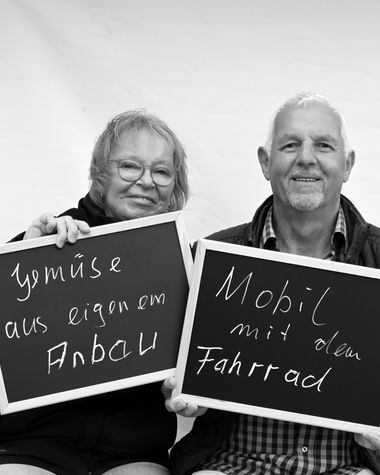 Gemüse
aus eigenem
Anbau
Mobil
mit dem
Fahrrad